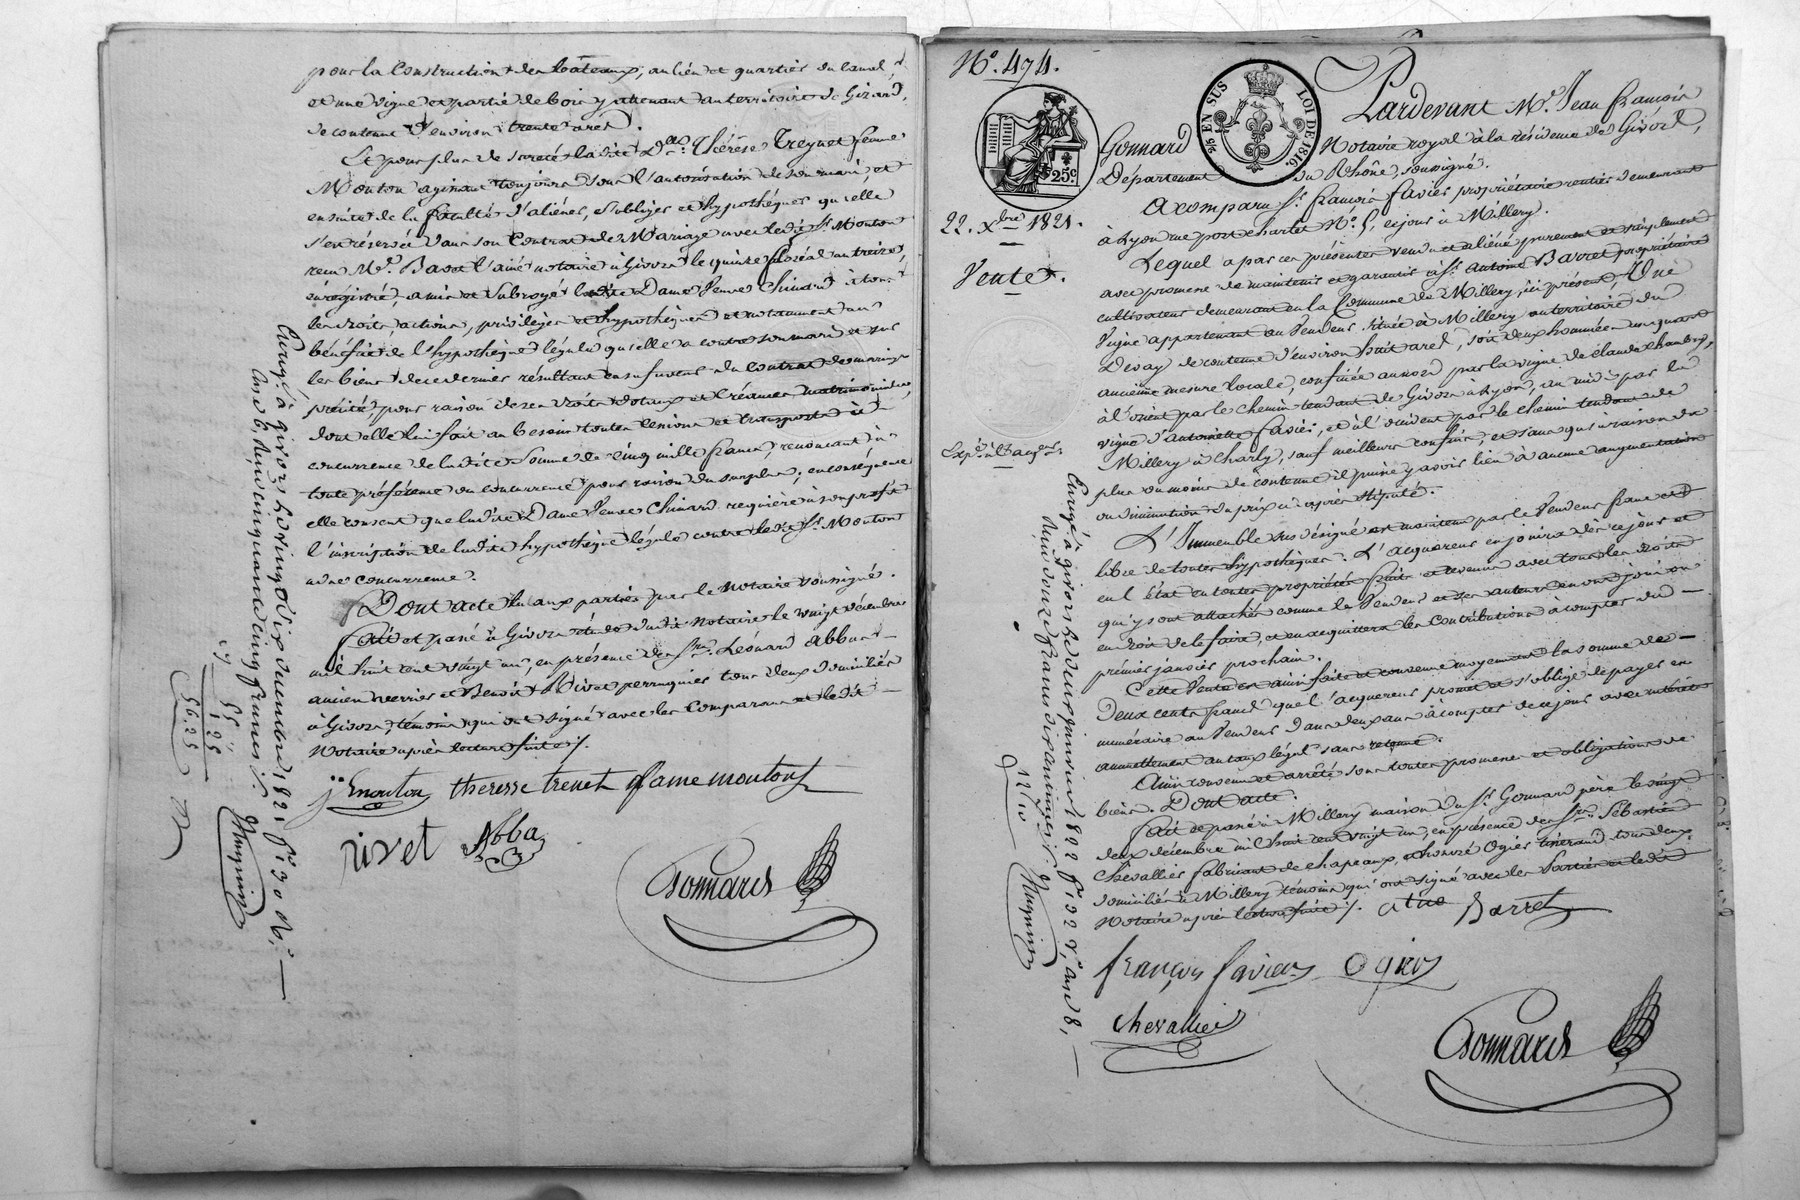 pour la Construction des bateaux, au lieu et quartier du Canal,
et une vigne et partie de bois y attenant au territoire de Gizard,
de contenue d'environ trente ares.
Et pour plus de sureté ladite D.e Thérèse Treynet femme
Mouton agissant toujours sous l'autorisation de son mari, et
ensuite de la faculté d'aliéner, s'obliger et hypothéquer qu'elle
s'en réservée dans son Contrat de Mariage avec ledit S.r Mouton
reçu M.e Bavet l'ainé notaire à Givors le quinze floréal an treize,
enregistré, a mis et subrogé ladite Dame Veuve Chinard à tous
les droits, actions, privilèges et hypothèques et notamment au
bénéfice de l'hypothèque légale qu'elle a contre son mari et sur
les biens de ce dernier résultant en sa faveur du contrat de mariage
précité, pour raison de ses droits dotaux et créances matrimoniales,
dont elle lui fait au besoin toutes cessions et transports à
concurrence de ladite somme de cinq mille francs, renonçant à
toute préférence ou concurrence pour raison du surplus; en conséquence
elle consent que ladite Dame Veuve Chinard requière à son profit
l'inscription de ladite hypothèque légale contre ledit S.r Mouton
à due concurrence.
Dont acte lu aux parties par le notaire soussigné.
Fait et passé à Givors étude dudit Notaire le vingt décembre
mil huit cent vingt un, en présence des S.rs Léonard Abba
ancien verrier et Benoit Rivet perruquier tous deux domiciliés
à Givors, témoins qui ont signé avec les Comparans et ledit
Notaire après lecture faite ./.
j. mouton theresse trenet fame mouton
rivet Abba
Gonnard
Enreg.é à givors le vingt six décembre 1821 f.o 130 R.o
Case 6, reçu cinquante cinq francs
55 "
1.25
56.25
N.o 474.
25.c
25 EN SUS LOI DE 1816.
22. X.bre 1821.
Vente.
Pardevant M.e Jean François
Gonnard Notaire royal à la résidence de Givors,
Département du Rhône, soussigné.
A comparu S.r François Favier propriétaire rentier demeurant
à Lyon rue port charlet N.o 5, ce jour à Millery.
Lequel a par ces présentes vendu et aliéné purement et simplement
avec promesse de maintenir et garantir à S.r Antoine Barret propriétaire
cultivateur demeurant en la Commune de Millery, ici présent, Une
Vigne appartenant au Vendeur située à Millery au territoire du
Devay de contenue d'environ huit ares, soit deux hommées un quart
ancienne mesure locale, confinée au nord par la vigne de Claude Chambry,
à l'orient par le chemin tendant de Givors à Lyon, au midi par la
vigne d'antoinette favier, et à l'occident par le chemin tendant de
Millery à Charly, sauf meilleurs confins, et sans qu'à raison du
plus ou moins de contenue il puisse y avoir lieu à aucune augmentation
ou diminution du prix ci après stipulé.
L'Immeuble sus désigné est maintenu par le Vendeur franc et
libre de toutes hypothèques. L'acquereur en jouira dès ce jour et
en l'état en toutes propriétés fruits et revenus avec tous les droits
qui y sont attachés comme le Vendeur et ses auteurs en ont joui ou
eu droit de le faire, et en acquittera les contributions à compter du
premier janvier prochain.
Cette Vente est ainsi faite et convenue moyennant la somme de
deux cents francs que l'acquereur promet et s'oblige de payer en
numéraire au Vendeur dans deux ans à compter de ce jour avec intérêts
annuellement au taux légal sans retenue.
Ainsi convenu et arrêté sous toutes promesses et obligations de
biens. Dont acte.
Fait et passé à Millery maison du S.r Gonnard père le vingt
deux décembre mil huit cent vingt un, en présence des S.rs Sébastien
Chevallier fabricant de chapeaux, et honoré Ogier tisserand tous deux
domiciliés à Millery témoins qui ont signé avec les Parties et ledit
Notaire après lecture faite ./. atne Barret
françois favier Ogier
chevallier
Gonnard
Enreg.é à givors le deux janvier 1822 f.o 132 v.o case 8,
reçu douze francs dix centimes
12 " 10